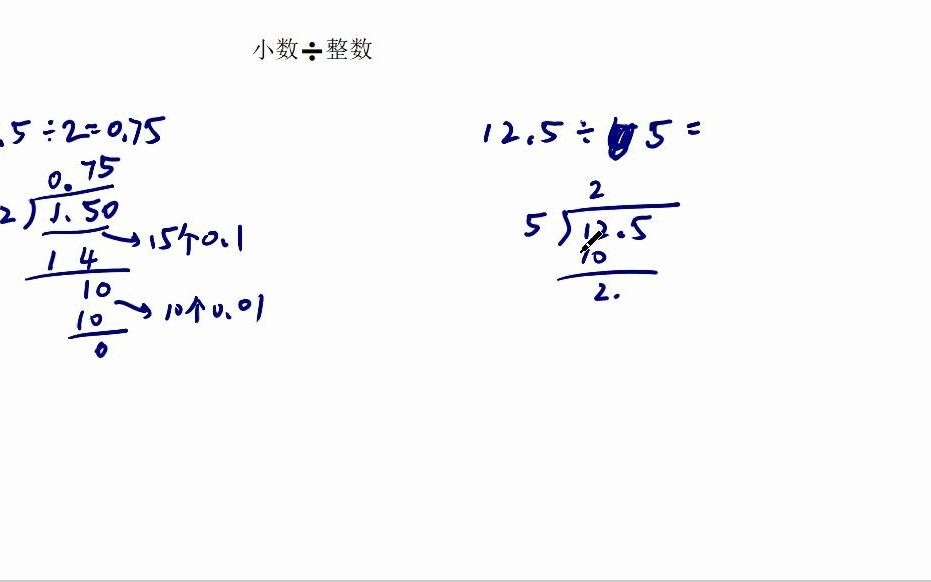 小数÷整数
.5÷2=0.75
0.75
2)1.50
15个0.1
1 4
10
10个0.01
10
0
12.5÷5=
2
5)12.5
10
2.